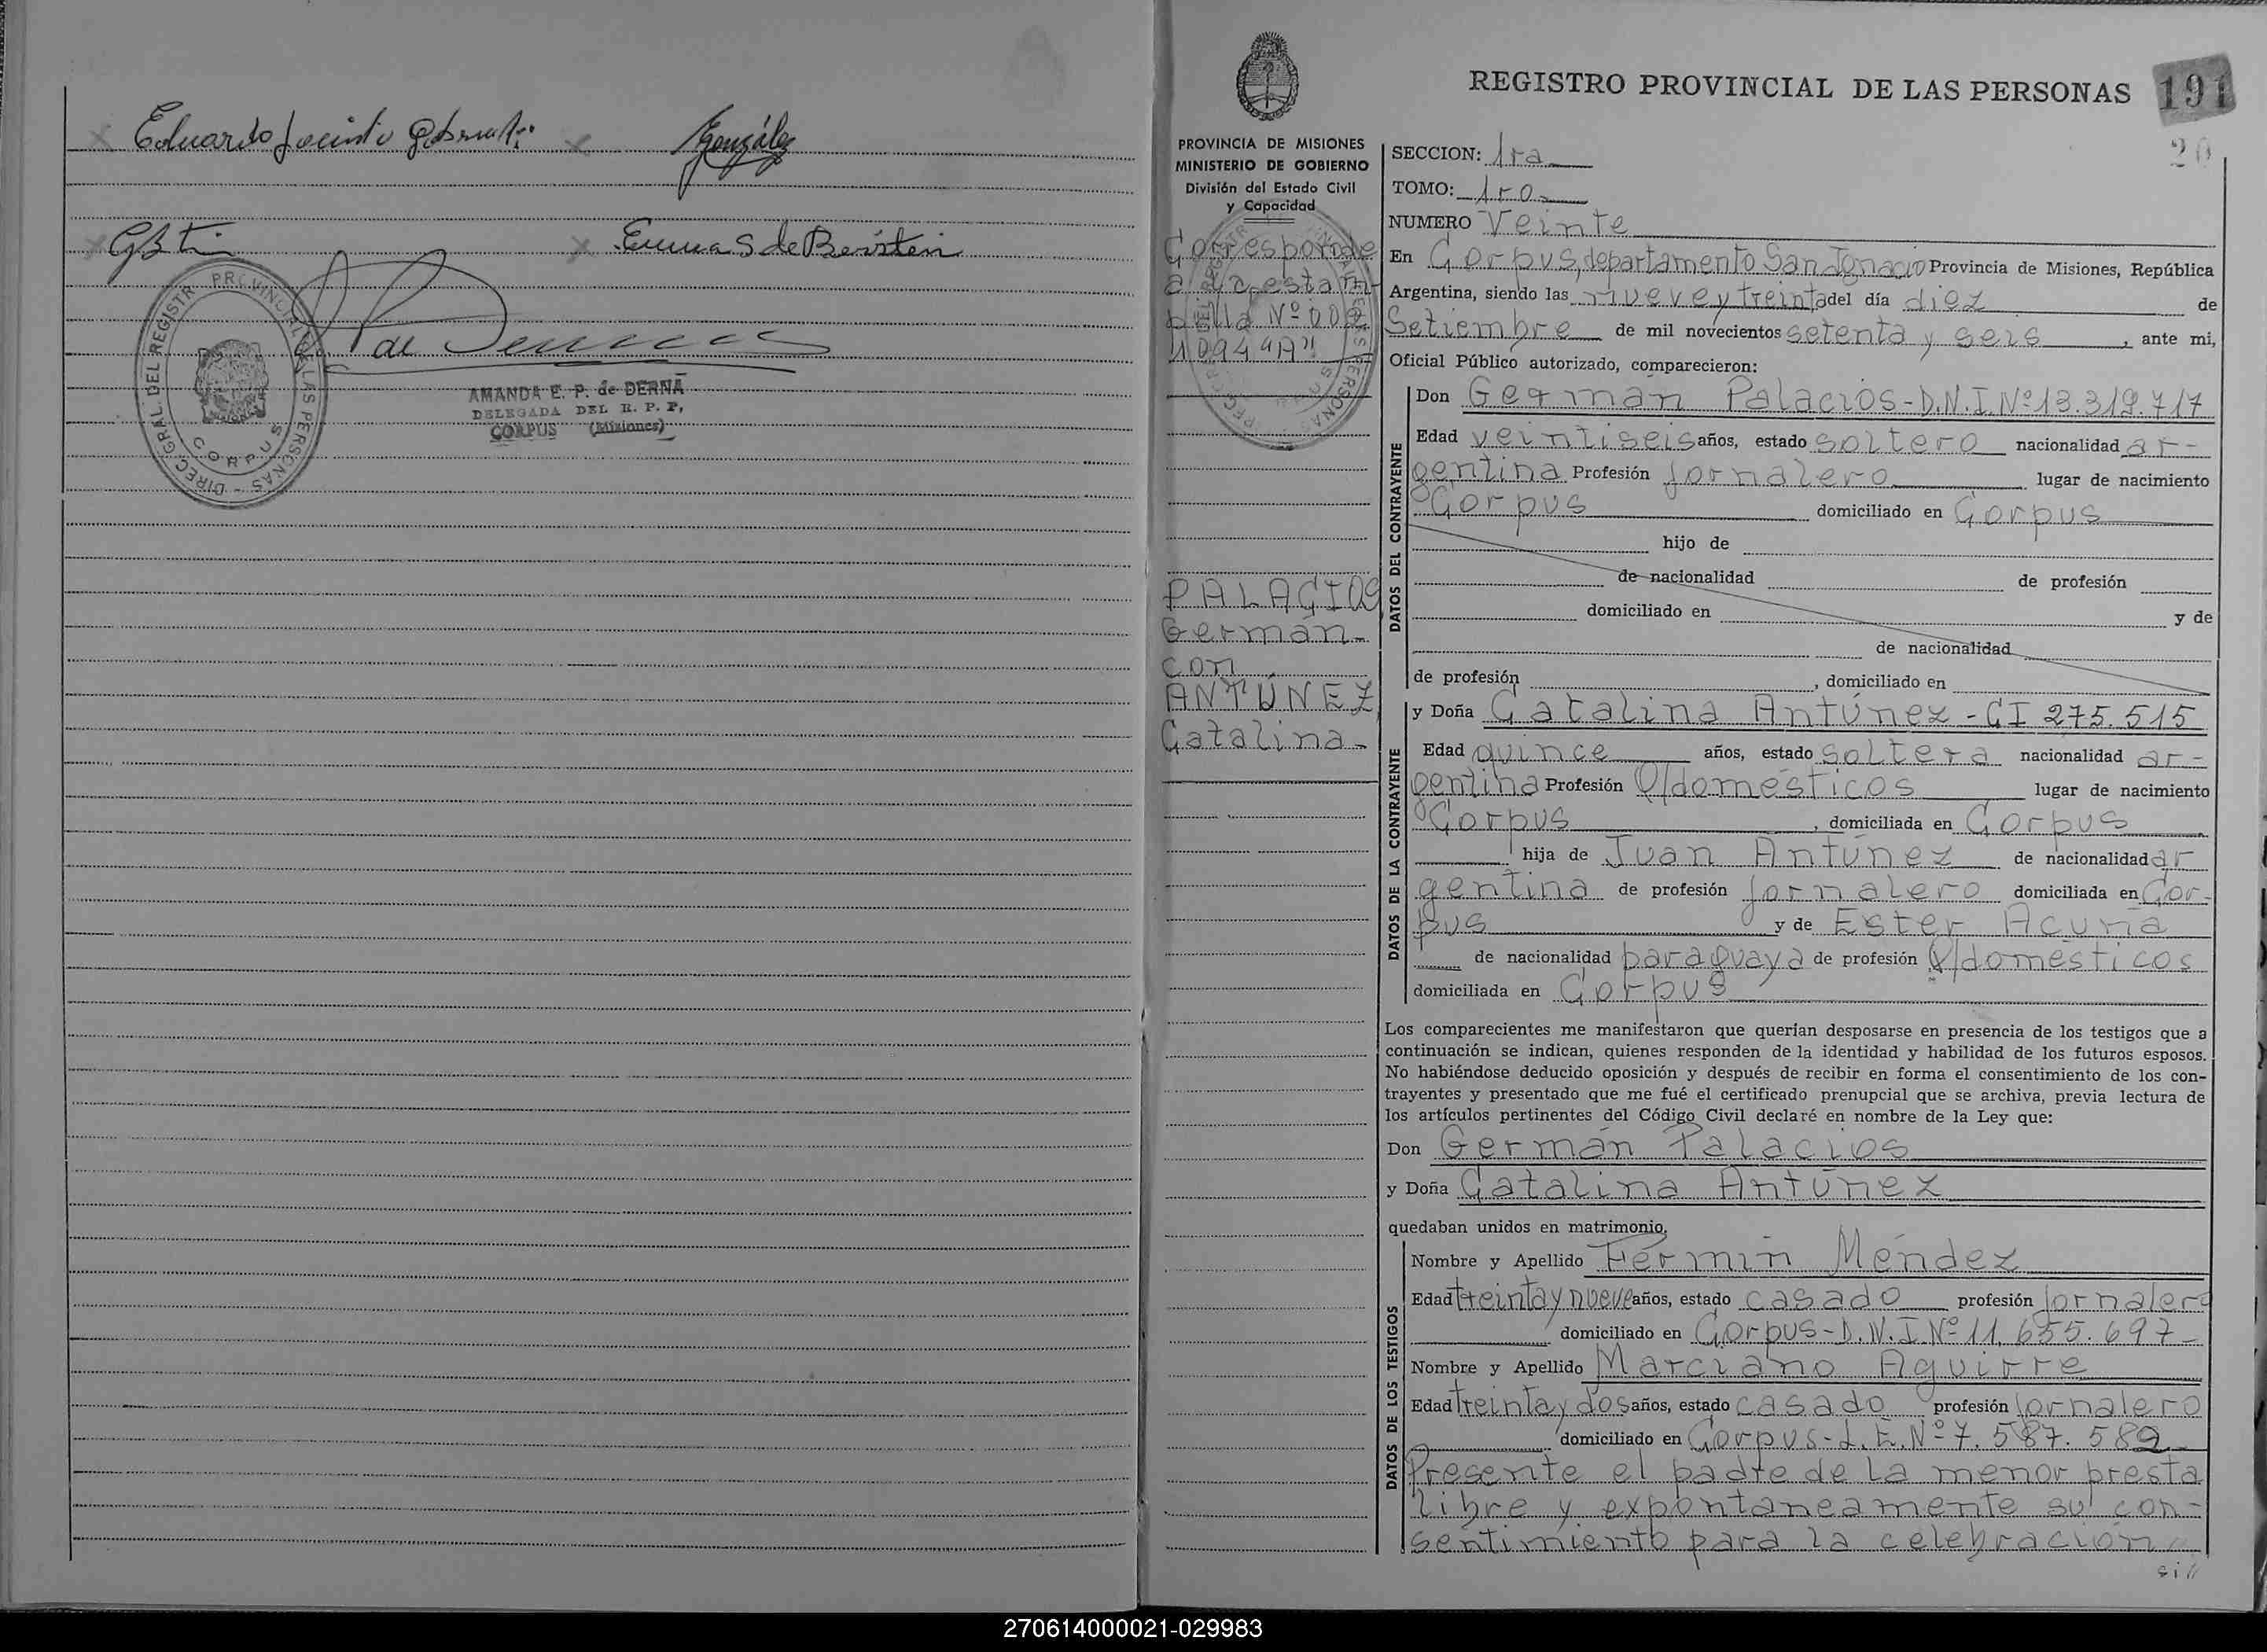 Eduardo Jacinto González
Emma S de Beristein
de Derna
PROVINCIAL DE LAS PERSONAS - DIREC. GRAL. DEL REGISTR.
CORPUS
AMANDA E. P. de DERNA
DELEGADA DEL R. P. P.
CORPUS (Misiones)
REGISTRO PROVINCIAL DE LAS PERSONAS 191
20
PROVINCIA DE MISIONES
MINISTERIO DE GOBIERNO
División del Estado Civil
y Capacidad
Corresponde
a la estam-
pilla Nº 00
1094 "A"
PALACIOS
Germán-
con
ANTÚNEZ,
Catalina-
SECCION: 1ra
TOMO: 1ro
NUMERO Veinte
En Corpus, departamento San Ignacio Provincia de Misiones, República
Argentina, siendo las nueve y treinta del día diez de
Setiembre de mil novecientos setenta y seis, ante mi,
Oficial Público autorizado, comparecieron:
DATOS DEL CONTRAYENTE
Don Germán Palacios - D.N.I Nº 13.319.717
Edad veintiseis años, estado soltero nacionalidad ar-
gentina Profesión jornalero lugar de nacimiento
Corpus domiciliado en Corpus
hijo de
de nacionalidad de profesión
domiciliado en y de
de nacionalidad
de profesión , domiciliado en
DATOS DE LA CONTRAYENTE
y Doña Catalina Antúnez - CI 275.515
Edad quince años, estado soltera nacionalidad ar-
gentina Profesión Q/domésticos lugar de nacimiento
Corpus, domiciliada en Corpus
hija de Juan Antúnez de nacionalidad ar
gentina de profesión jornalero domiciliada en Cor-
pus y de Ester Acuña
de nacionalidad paraguaya de profesión Q/domésticos
domiciliada en Corpus
Los comparecientes me manifestaron que querían desposarse en presencia de los testigos que a
continuación se indican, quienes responden de la identidad y habilidad de los futuros esposos.
No habiéndose deducido oposición y después de recibir en forma el consentimiento de los con-
trayentes y presentado que me fué el certificado prenupcial que se archiva, previa lectura de
los artículos pertinentes del Código Civil declaré en nombre de la Ley que:
Don Germán Palacios
y Doña Catalina Antúnez
quedaban unidos en matrimonio.
DATOS DE LOS TESTIGOS
Nombre y Apellido Fermín Méndez
Edad treinta y nueve años, estado casado profesión jornalero
domiciliado en Corpus - D.N.I Nº 11.655.697-
Nombre y Apellido Marciano Aguirre
Edad treinta y dos años, estado casado profesión jornalero
domiciliado en Corpus - L.E. Nº 7.587.582-
Presente el padre de la menor presta
libre y expontaneamente su con-
sentimiento para la celebración
270614000021-029983